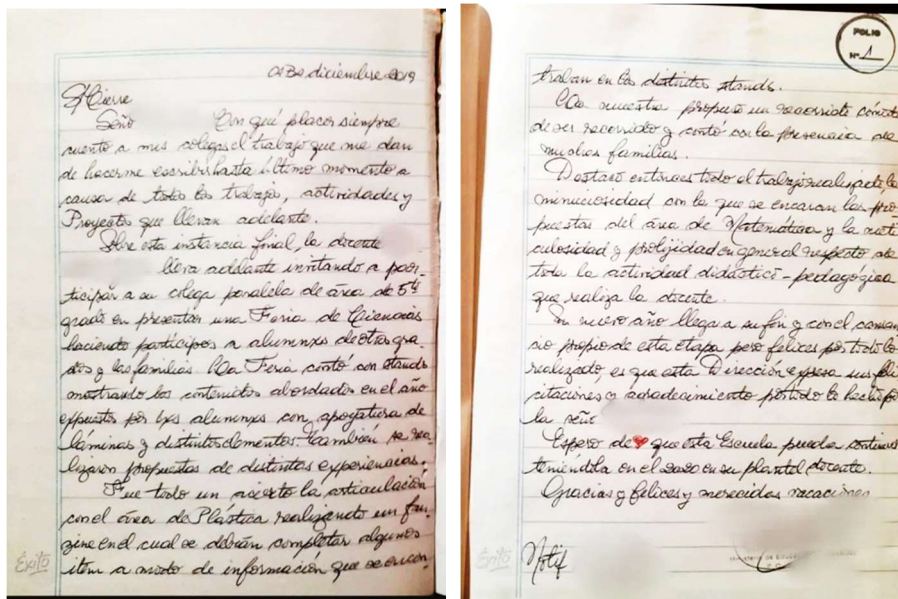 CABA diciembre 2019
S/Cierre
Seño Con qué placer siempre
cuento a mis colegas el trabajo que me dan
de hacerme escribir hasta último momento a
causa de todos los trabajos, actividades y
Proyectos que llevan adelante.
Sobre esta instancia final, la docente
lleva adelante invitando a par-
ticipar a su colega paralela de área de 5to
grado en presentar una Feria de Ciencias
haciendo partícipes a alumnxs de otros gra-
dos y las familias. La Feria contó con stands
mostrando los contenidos abordados en el año
expuestos por lxs alumnxs con apoyatura de
láminas y distintos elementos. También se rea-
lizaron propuestas de distintas experiencias.
Fue todo un acierto la articulación
con el área de Plástica realizando un fan-
zine en el cual se debían completar algunos
item a modo de información que se encon
Éxito
FOLIO
Nº 1
traban en los distintos stands.
La muestra propuso un recorrido cómodo
de ser recorrido y contó con la presencia de
muchas familias.
Destaco entonces todo el trabajo realizado, la
minuciosidad con la que se encaran las pro-
puestas del área de Matemática y la meti
culosidad y prolijidad en general respecto de
toda la actividad didáctico-pedagógica
que realiza la docente.
Un nuevo año llega a su fin y con el cansan
cio propio de esta etapa pero felices por todo lo
realizado, es que esta Dirección expresa sus feli
citaciones y agradecimiento por todo lo hecho por
la seño
Espero de ❤ que esta Escuela pueda continuar
teniéndola en el 2020 en su plantel docente.
Gracias y felices y merecidas vacaciones
Éxito
Notif